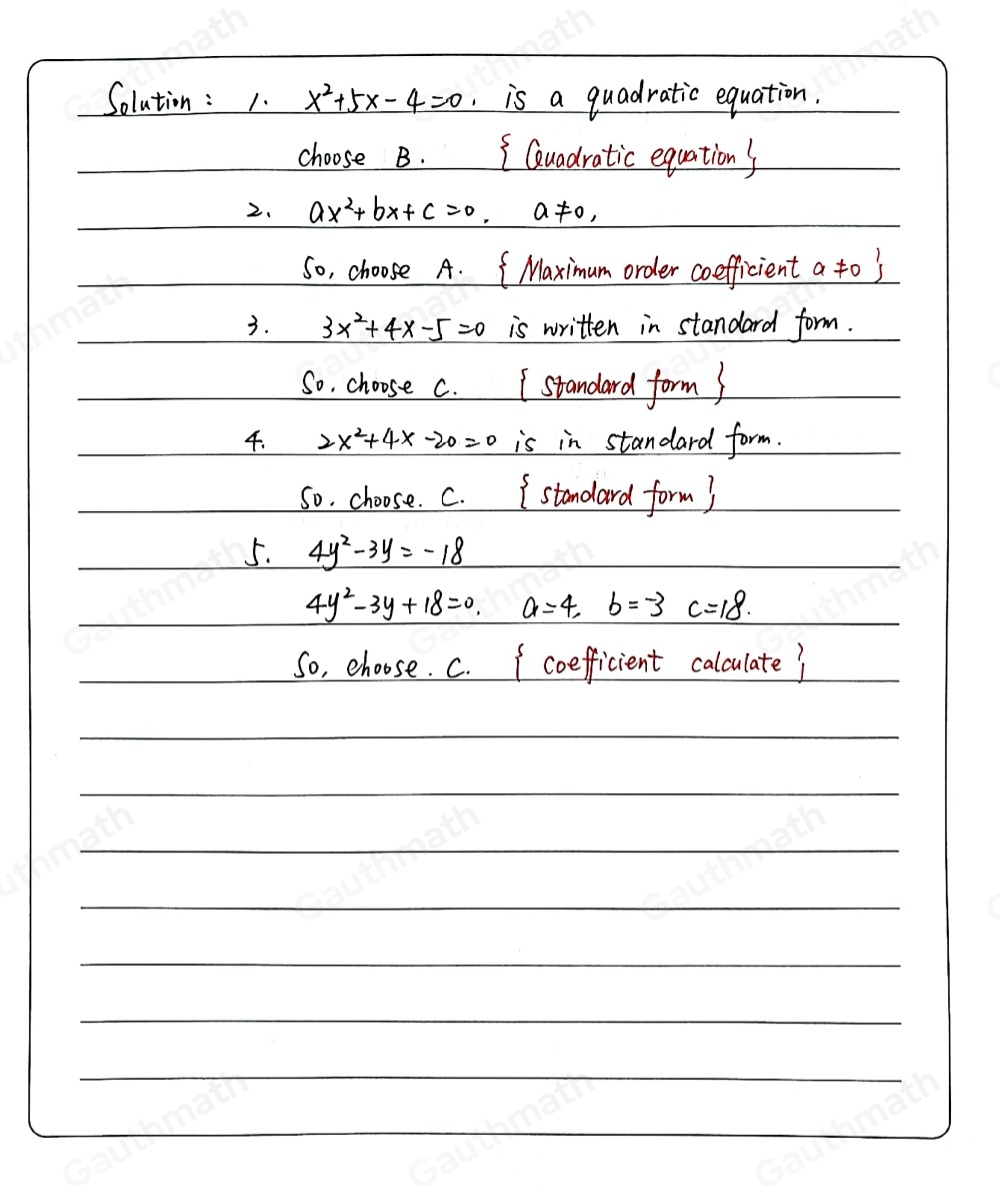 Solution : 1. x²+5x-4=0. is a quadratic equation.
choose B. { Quadratic equation }
2. ax²+bx+c=0. a≠0,
So, choose A. { Maximum order coefficient a≠0 }
3. 3x²+4x-5=0 is written in standard form.
So. choose C. { standard form }
4. 2x²+4x-20=0 is in standard form.
So. choose. C. { standard form }
5. 4y²-3y=-18
4y²-3y+18=0. a=4, b=-3 c=18.
So, choose. C. { coefficient calculate }
Gauthmath